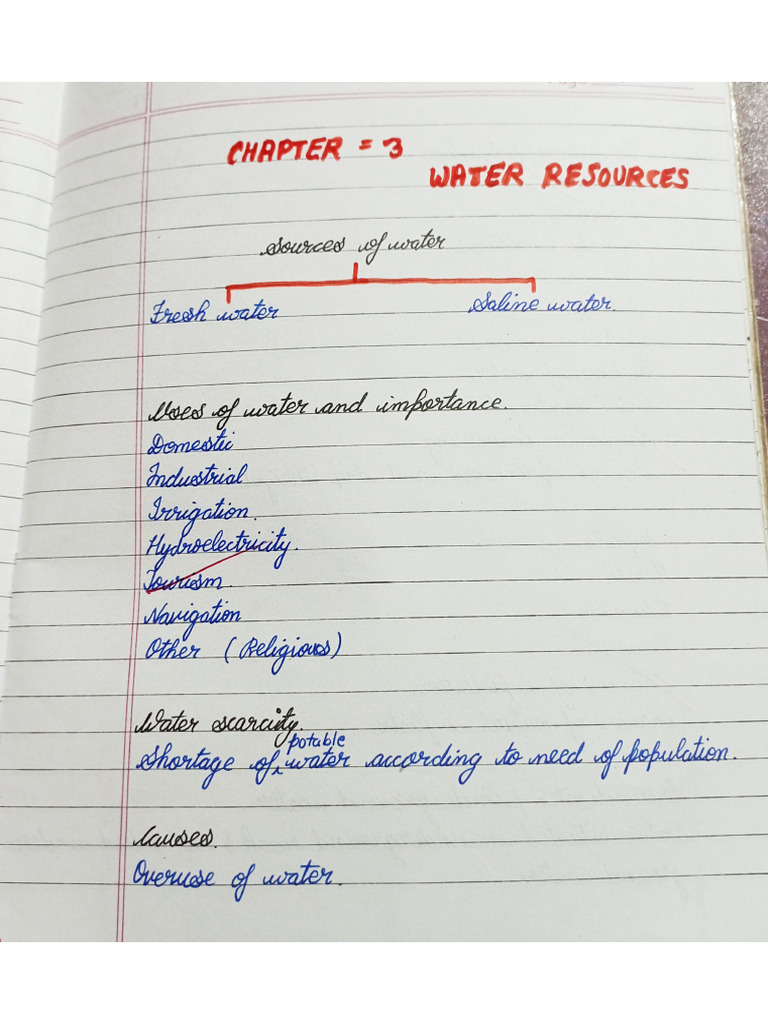 CHAPTER = 3
WATER RESOURCES
Sources of water
Fresh water Saline water.
Uses of water and importance.
Domestic
Industrial
Irrigation.
Hydroelectricity.
Tourism.
Navigation
Other (Religious)
Water scarcity.
Shortage of potable water according to need of population.
Causes.
Overuse of water.